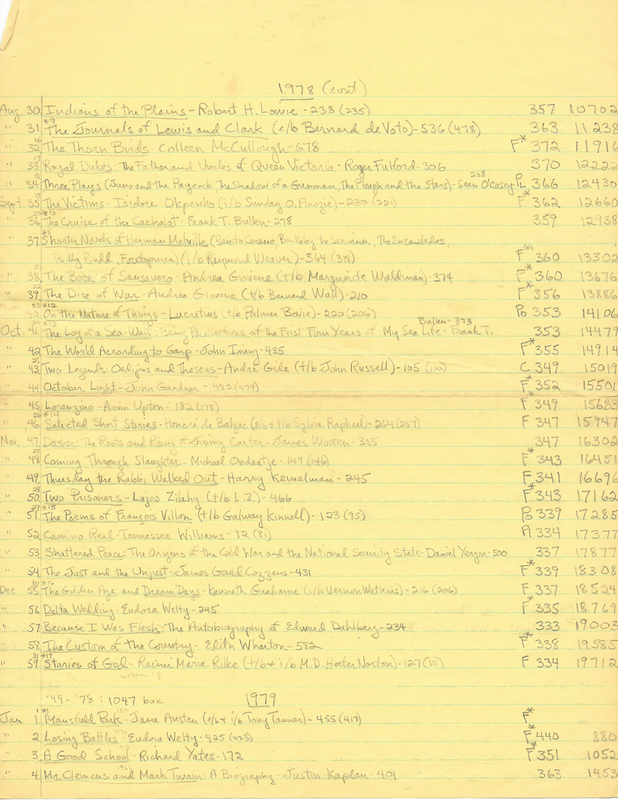 1978 (cont)
Aug. 30 Indians of the Plains - Robert H. Lowie - 238 (235) 357 10702
" 31 The Journals of Lewis and Clark (e/b Bernard deVoto) - 536 (478) 363 11238
" 32 The Thorn Birds - Colleen McCullough - 678 F* 372 11916
" 33 Royal Dukes: The Father and Uncles of Queen Victoria - Roger Fulford - 306 370 12222
" 34 Three Plays (Juno and the Paycock, The Shadow of a Gunman, The Plough and the Stars) - Sean O'Casey 208 PL 366 12430
Sept. 35 The Victims - Isidore Okpewho (i/b Sunday O. Anozie) - 230 (221) F* 362 12660
" 36 The Cruise of the Cachalot - Frank T. Bullen - 278 359 12938
" 37 Shorter Novels of Herman Melville (Benito Cereno, Bartleby the Scrivener, The Encantadas,
Billy Budd, Foretopman) (i/b Raymond Weaver) - 364 F 360 13302
" 38 The Book of Sansevero - Andrea Giovene (t/b Marguerite Waldman) - 374 F* 360 13676
" 39 The Dice of War - Andrea Giovene (t/b Bernard Wall) - 210 F* 356 13886
" 40 On the Nature of Things - Lucretius (t/b Palmer Bovie) - 220 (206) Po 353 14106
Oct. 41 The Log of a Sea-Waif: Being Recollections of the First Four Years of My Sea Life - Frank T. Bullen - 373 353 14479
" 42 The World According to Garp - John Irving - 435 F* 355 14914
" 43 Two Legends: Oedipus and Theseus - Andre Gide (t/b John Russell) - 105 C 349 15019
" 44 October Light - John Gardner - 482 (479) F* 352 15501
" 45 Lorenzino - Arvin Upton - 182 (178) F* 349 15683
" 46 Selected Short Stories - Honoré de Balzac (e/b & t/b Sylvia Raphael) - 264 (257) F 347 15947
Nov. 47 Dasher: The Roots and Rising of Jimmy Carter - James Wooten - 355 347 16302
" 48 Coming Through Slaughter - Michael Ondaatje - 149 (146) F* 343 16451
" 49 Thursday the Rabbi Walked Out - Harry Kemelman - 245 F 341 16696
" 50 Two Prisoners - Lajos Zilahy (t/b L.Z.) - 466 F* 343 17162
" 51 The Poems of François Villon (t/b Galway Kinnell) - 123 (95) Po 339 17285
" 52 Camino Real - Tennessee Williams - 92 (81) A 334 17377
" 53 Shattered Peace: The Origins of the Cold War and the National Security State - Daniel Yergin - 500 337 17877
" 54 The Just and the Unjust - James Gould Cozzens - 431 F* 339 18308
Dec 55 The Golden Age and Dream Days - Kenneth Grahame (i/b Vernon Watkins) - 216 (206) F 337 18524
" 56 Delta Wedding - Eudora Welty - 245 F* 335 18769
" 57 Because I Was Flesh: The Autobiography of Edward Dahlberg - 234 333 19003
" 58 The Custom of the Country - Edith Wharton - 582 F* 338 19585
" 59 Stories of God - Rainer Maria Rilke (t/b & i/b M.D. Herter Norton) - 127 (111) F 334 19712
'49 - '78: 1047 1979
Jan 1 Mansfield Park - Jane Austen (e/b & i/b Tony Tanner) - 455 (417) F*
" 2 Losing Battles - Eudora Welty - 425 F* 440 880
" 3 A Good School - Richard Yates - 172 F* 351 1052
" 4 Mr. Clemens and Mark Twain: A Biography - Justin Kaplan - 401 363 1453